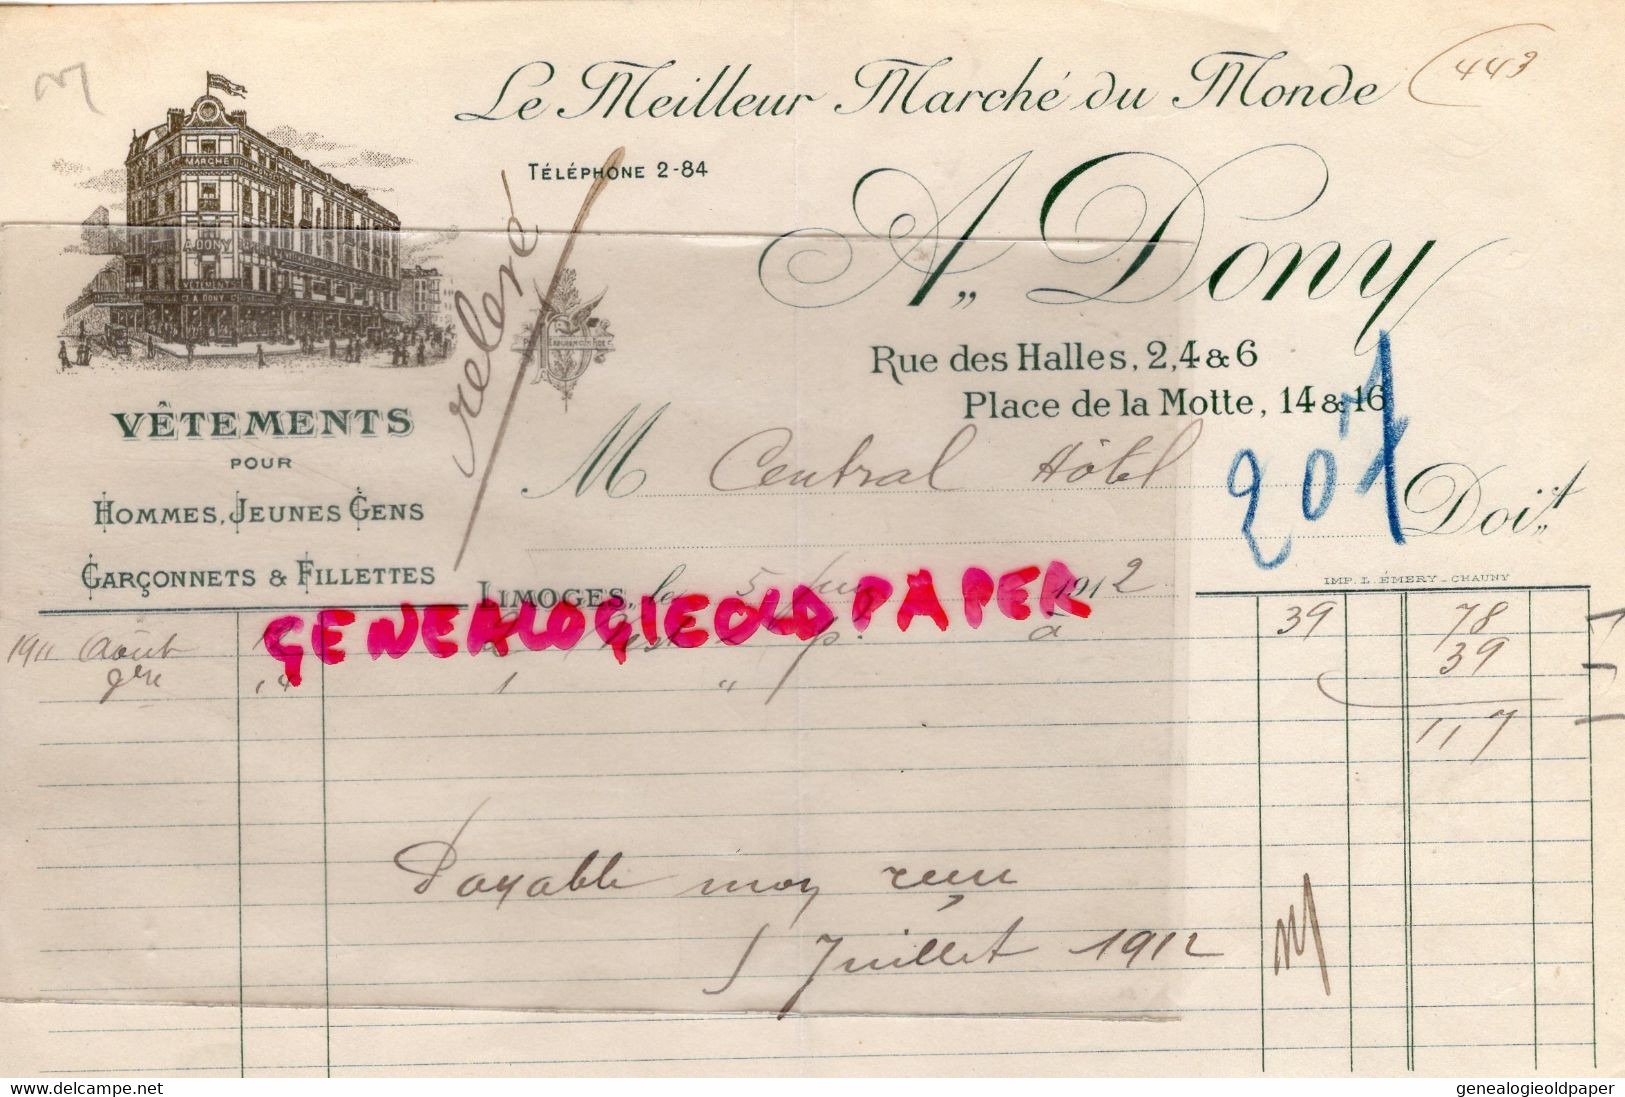 Le Meilleur Marché du Monde
443
TÉLÉPHONE 2-84
A. Dony
MARCHÉ
A. DONY
VÊTEMENTS
A. DONY
relevé
Rue des Halles, 2, 4 & 6
Place de la Motte, 14 & 16
VÊTEMENTS
POUR
HOMMES, JEUNES GENS
GARÇONNETS & FILLETTES
M Central Hôtel
207
Doit
IMP. L. ÉMERY - CHAUNY
LIMOGES, le 5 1912
GENEALOGIEOLDPAPER
1911 Août 2 à 39 78
1 " 39
117
Payable moy reçu
5 Juillet 1912
www.delcampe.net
genealogieoldpaper